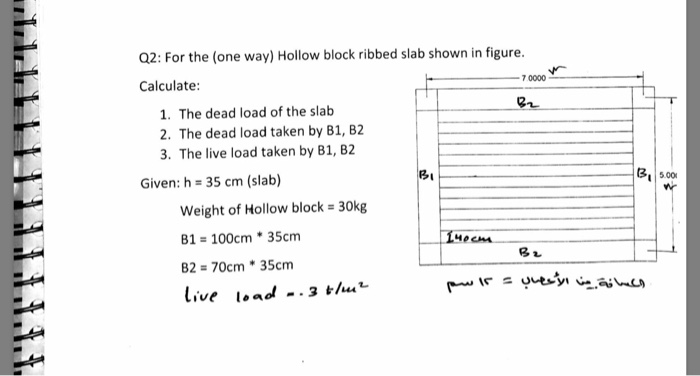 Q2: For the (one way) Hollow block ribbed slab shown in figure.
Calculate:
1. The dead load of the slab
2. The dead load taken by B1, B2
3. The live load taken by B1, B2
Given: h = 35 cm (slab)
Weight of Hollow block = 30kg
B1 = 100cm * 35cm
B2 = 70cm * 35cm
live load = .3 t/m²
7.0000 m
B2
B1
B1
5.00
m
40cm
B2
المسافة بين الأعصاب = ١٢ سم